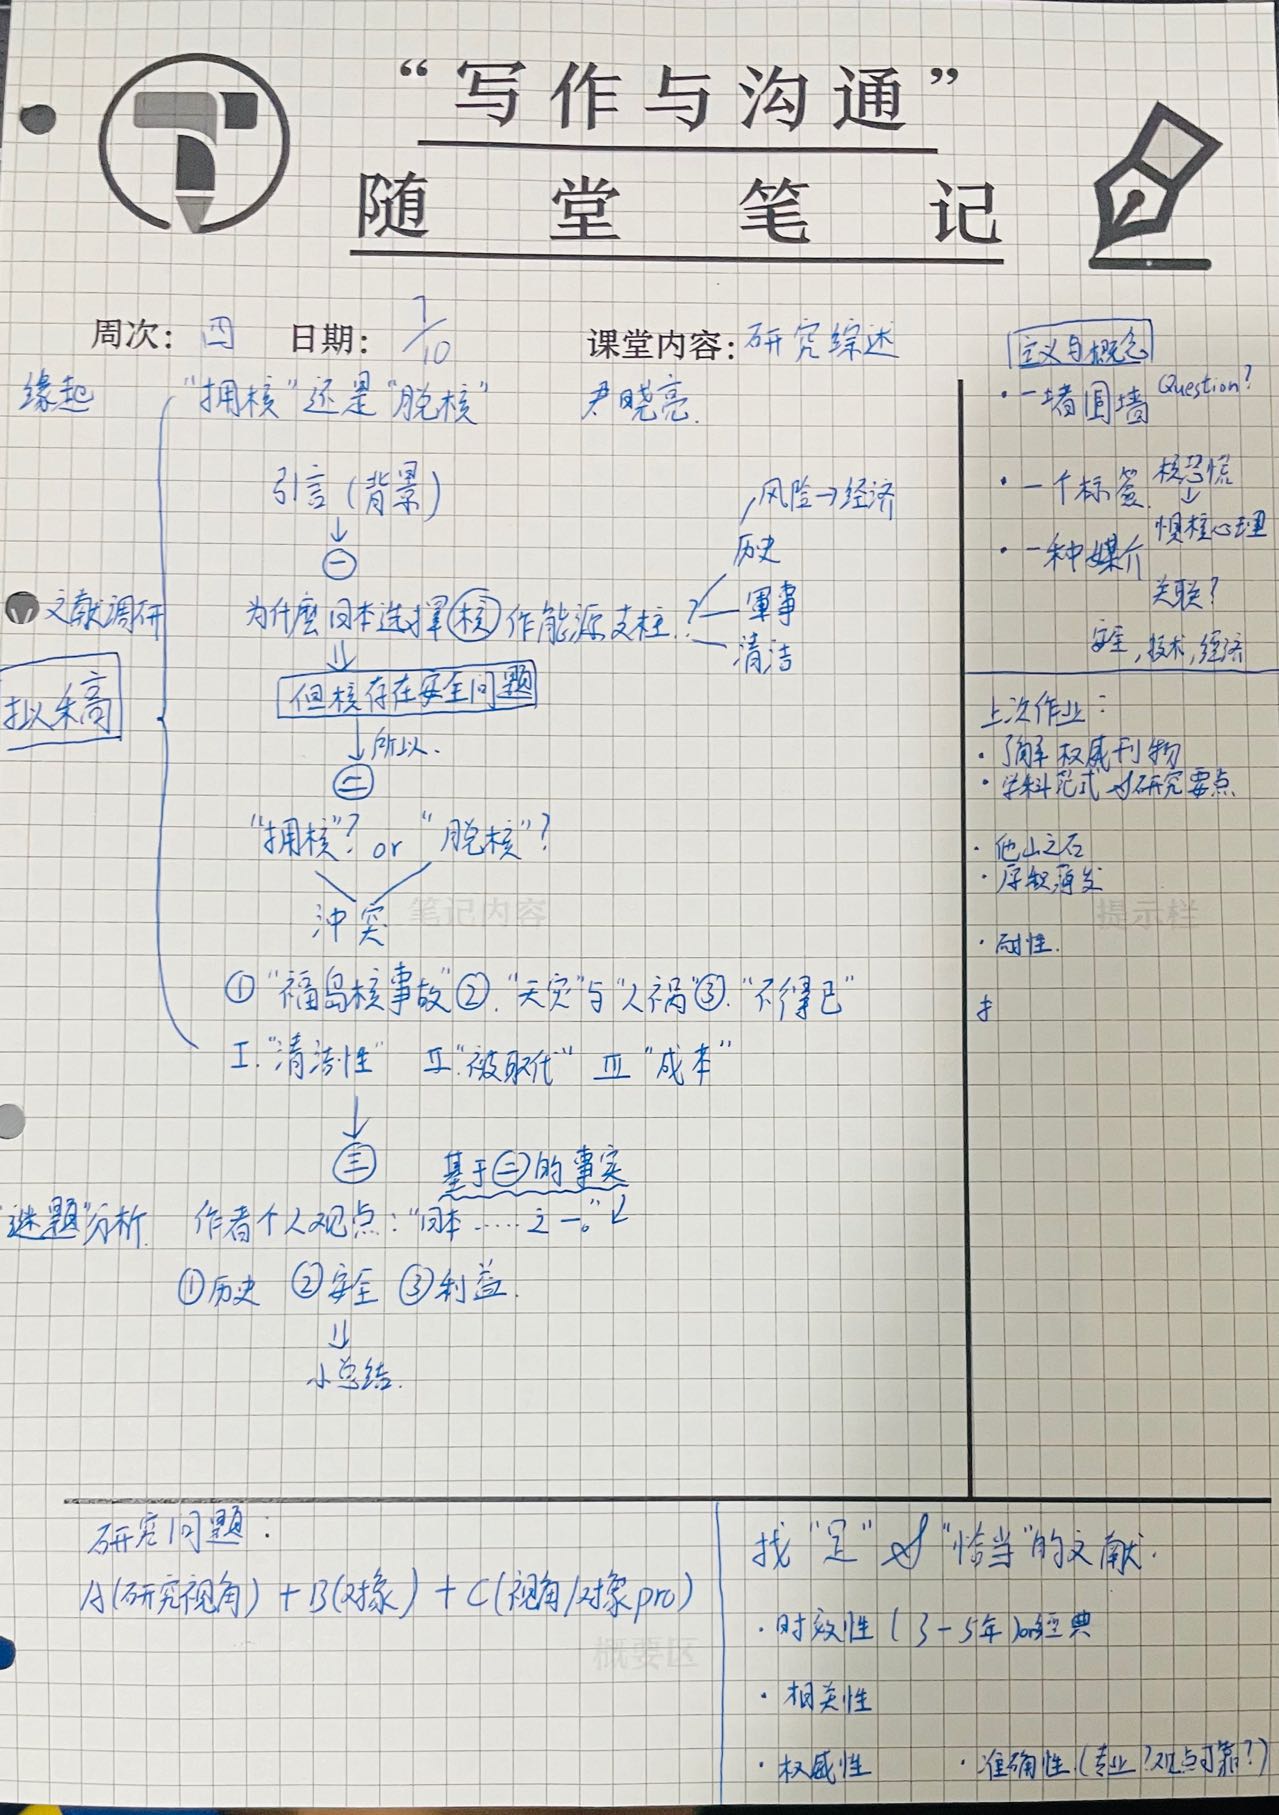 “写作与沟通”
随堂笔记
周次：四 日期：7/10 课堂内容：研究综述
缘起 “拥核”还是“脱核” 尹晓亮.
引言（背景）
↓
㊀
为什麼日本选择核作能源支柱？
风险→经济
历史
軍事
清洁
文献调研
拟稿
⇓
但核存在安全问题
↓所以.
㊁
“拥核”？or “脱核”？
冲突
笔记内容
①“福岛核事故”②.“天灾”与“人祸”③.“不得已”
Ⅰ.“清洁性” Ⅱ.“被取代” Ⅲ“成本”
↓
㊂ 基于㊁的事实
“谜题”分析. 作者个人观点：“日本……之一。”
①历史 ②安全 ③利益.
⇓
小总结.
定义与概念
·一堵围墙 Question?
·一个标签 核恐慌
↓
·一种媒介 惧核心理
关联？
安全，技术，经济
上次作业：
·了解权威刊物
·学科范式&研究要点
·他山之石
·厚积薄发
提示栏
·耐性.
研究问题：
A(研究视角) + B(对象) + C(视角/对象pro)
概要区
找“足”&“恰当”的文献.
·时效性（3-5年）or经典
·相关性
·权威性 ·准确性（专业？观点可靠？）